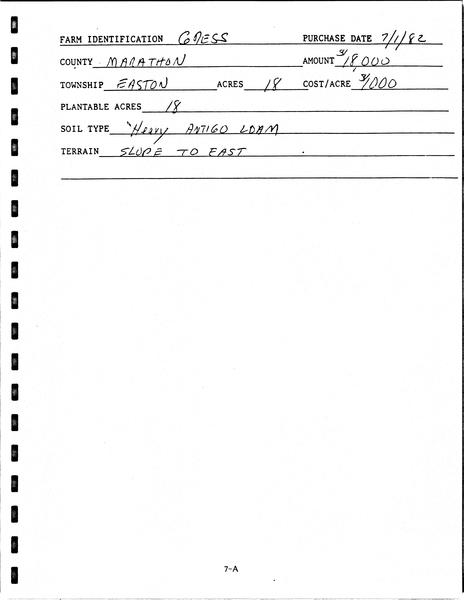 FARM IDENTIFICATION GRESS PURCHASE DATE 7/1/82
COUNTY MARATHON AMOUNT $18,000
TOWNSHIP EASTON ACRES 18 COST/ACRE $1000
PLANTABLE ACRES 18
SOIL TYPE "Heavy ANTIGO LOAM
TERRAIN SLOPE TO EAST
7-A